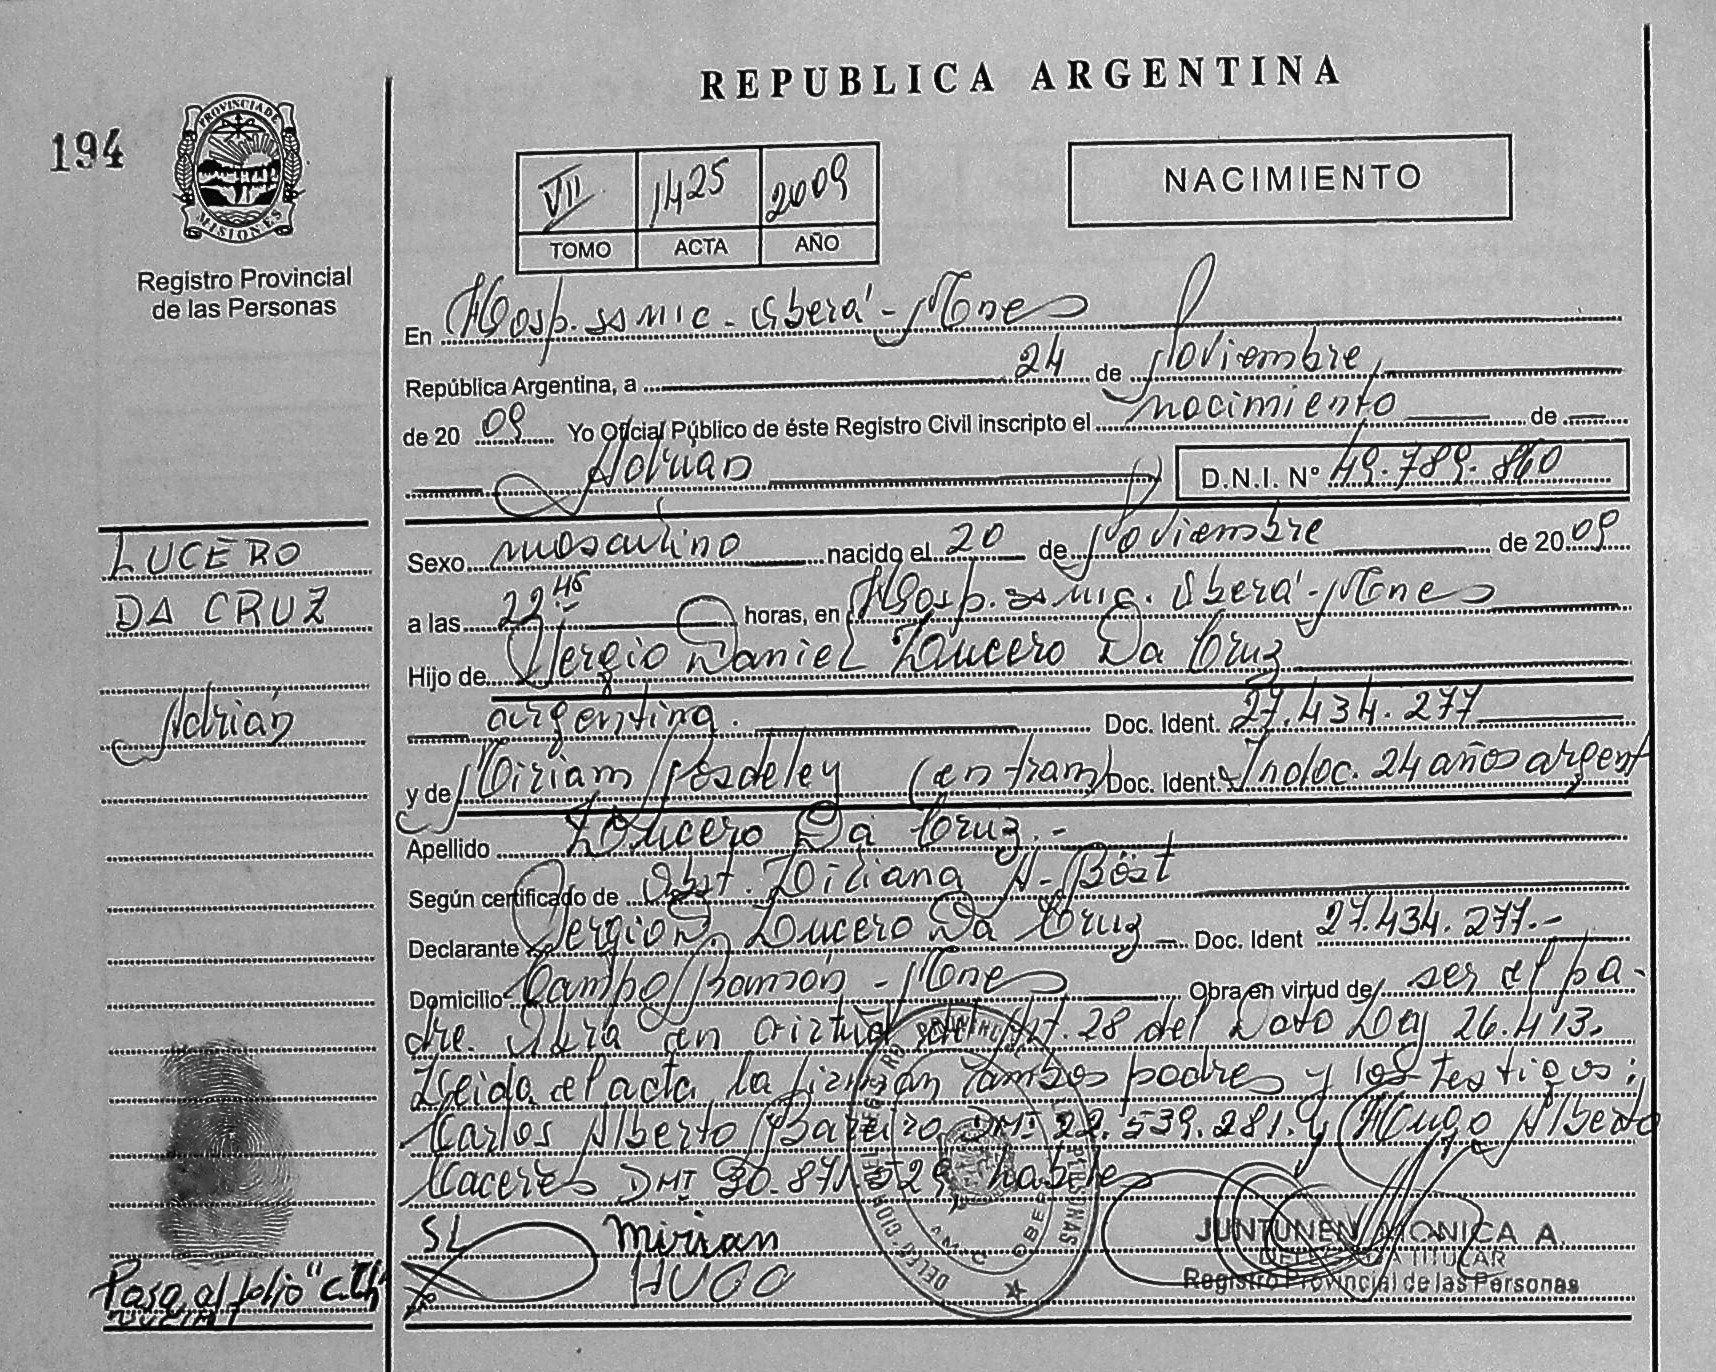 REPUBLICA ARGENTINA
194
PROVINCIA DE
MISIONES
Registro Provincial
de las Personas
VII 1425 2009
TOMO ACTA AÑO
NACIMIENTO
En Hosp. SAMIC - Oberá - Mnes
República Argentina, a 24 de Noviembre
de 2009 Yo Oficial Público de éste Registro Civil inscripto el nacimiento de
Adrian D.N.I. Nº 49.789.860
LUCERO
DA CRUZ
Adrián
Sexo masculino nacido el 20 de Noviembre de 2009
a las 22 45 horas, en Hosp. SAMIC. Oberá - Mnes
Hijo de Sergio Daniel Lucero Da Cruz
argentina. Doc. Ident. 27.434.277
y de Miriam Posdeley (en tram) Doc. Ident. Indoc. 24 años argent
Apellido Lucero Da Cruz.-
Según certificado de Obst. Liliana A. Böst
Declarante Sergio D. Lucero Da Cruz Doc. Ident 27.434.277.-
Domicilio Campo Ramón - Mnes Obra en virtud de ser el pa-
dre. Obra en virtud del Art. 28 del Dcto Ley 26.413.
Leida el acta la firman ambos padres y los testigos:
Carlos Alberto Bareiro DNI 22.539.281. y Hugo Alberto
Caceres DNI 30.871.529 habiles
SL Mirian
HUGO
JUNTUNEN MONICA A.
DELEGADA TITULAR
Registro Provincial de las Personas
Pasa al folio "C.th"